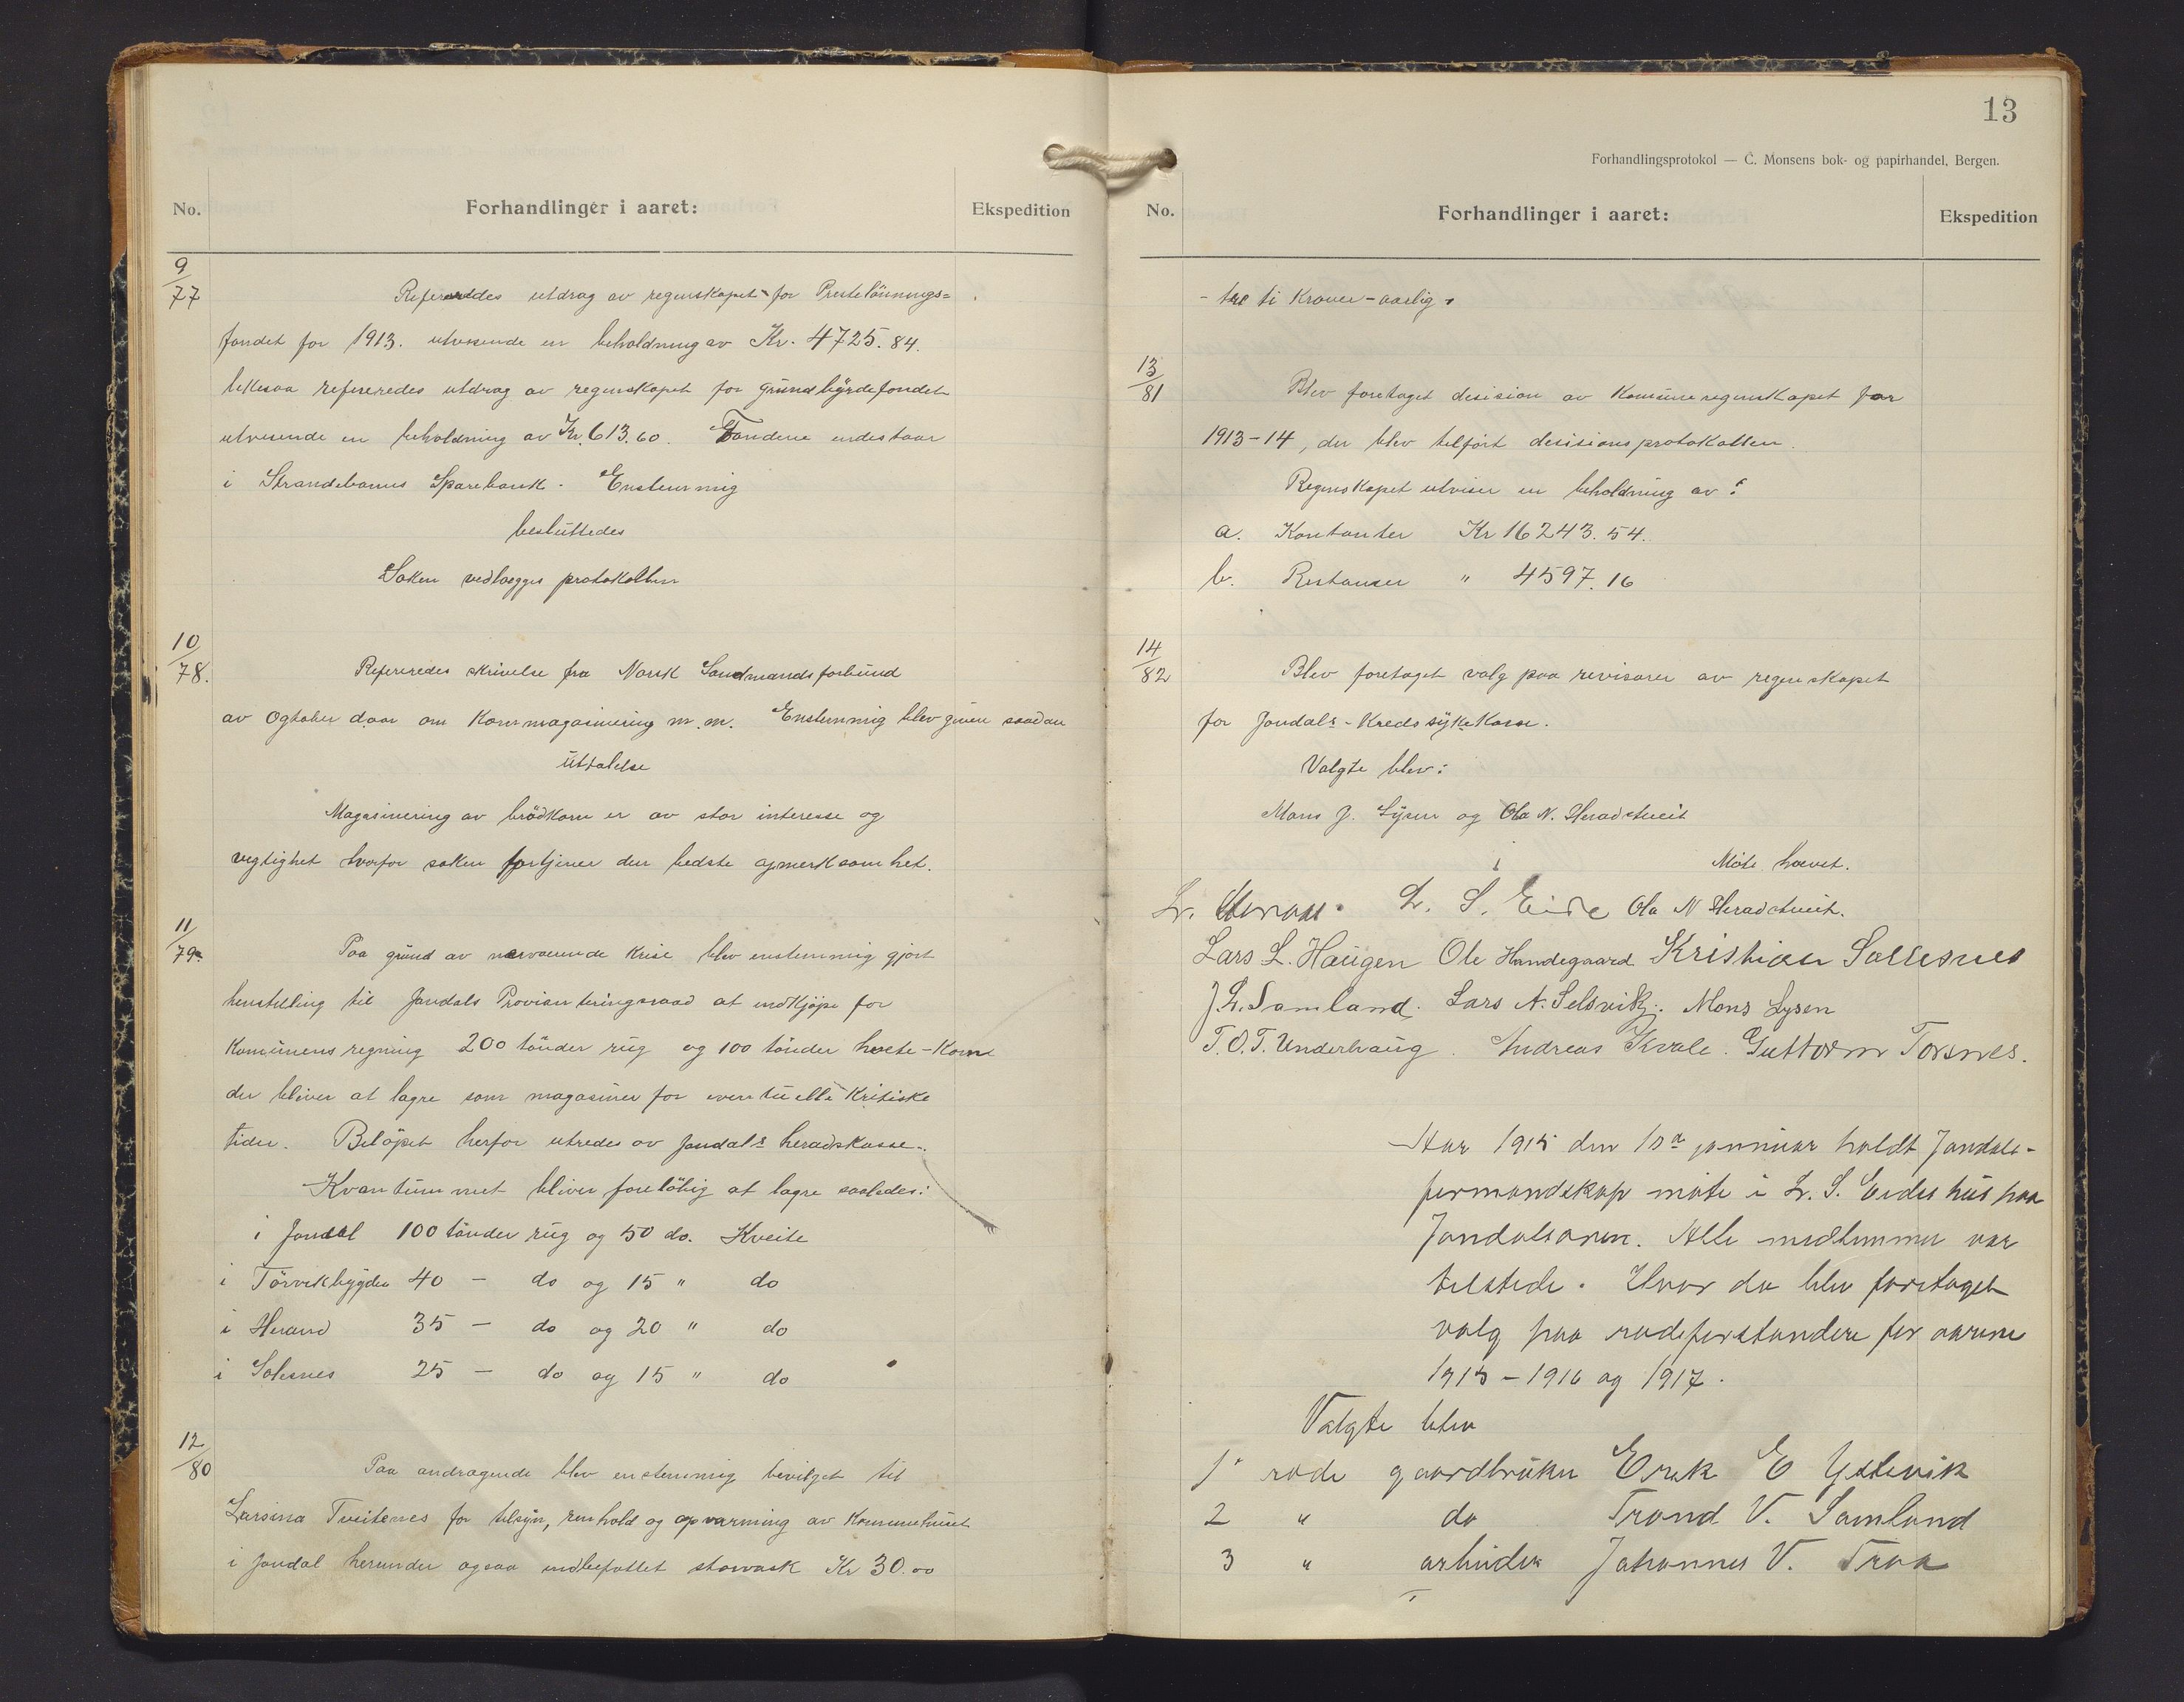 No. Forhandlinger i aaret: Ekspedition
9/77 Refereredes utdrag av regnskapet for Prestelönnings=
fondet for 1913. utvisende en beholdning av Kr. 4725.84.
likesaa refereredes utdrag av regnskapet for Grundbyrdefondet
utvisende en beholdning av Kr. 613.60. Fondene indestaar
i Strandebarms Sparebank. Enstemmig
besluttedes
Saken vedlægges protokollen
10/78. Refereredes skrivelse fra Norsk Landmandsforbund
av Ogtober d.aar om Kornmagasinering m.m. Enstemmig blev given saadan
üttalelse
Magasinering av brödkorn er av stor interesse og
vegtighet hvorfor saken fortjener den bedste opmerksomhet.
11/79. Paa gründ av nærværende Krise blev enstemmig gjort
henstilling til Jondals Provianteringsraad at indkjöpe for
Komünens regning 200 tönder rüg og 100 tönder hvete-Korn
der bliver at lagre som magasiner for eventuelle Kritiske
tider. Belöpet herfor utredes av Jondals heradskasse.
Kvantummet bliver forelöbig at lagre saaledes:
i Jondal 100 tönder rüg og 50 do. Kveite
i Törvikbygden 40 - do og 15 " do
i Herand 35 - do og 20 " do
i Solesnes 25 - do og 15 " do
12/80 Paa andragende blev enstemmig bevilget til
Larsina Tveitenes for tilsyn, renhold og opvarming av Kommunehuset
i Jondal herunder ogsaa indbefattet storvask Kr 30.00
13
Forhandlingsprotokol — C. Monsens bok- og papirhandel, Bergen.
No. Forhandlinger i aaret: Ekspedition
- tre ti Kroner - aarlig.
13/81 Blev foretaget desision av Komüneregnskapet for
1913-14, der blev tilført desisionsprotokollen.
Regnskapet utviser en beholdning av:
a. Kontanter Kr 16243.54.
b. Restanser " 4597.16
14/82 Blev foretaget valg paa revisorer av regnskapet
for Jondals-Kredssykekasse.
Valgte blev:
Mons J. Lysen og Ola N. Heradstveit
Møte hævet.
L. S. Eide Ola N Heradstveit.
Lars L. Haugen Ole Handegaard Kristian Sollesnes
J. L. Samland. Lars N. Selsvik. Mons Lysen
T. O. T. Underhaug. Andreas Kvale. Guttorm Torsnes.
Aar 1915 den 10de januar holdt Jondals-
formandskap møte i L. S. Eides hus paa
Jondalsøren. Alle medlemmer var
tilstede. Hvor da blev foretaget
valg paa rodeforstandere for aarene
1915 - 1916 og 1917.
Valgte blev
1" rode gaardbruker Erik E Ystevik
2 " do Trond V. Samland
3 " arbeider Johannes V. Traa